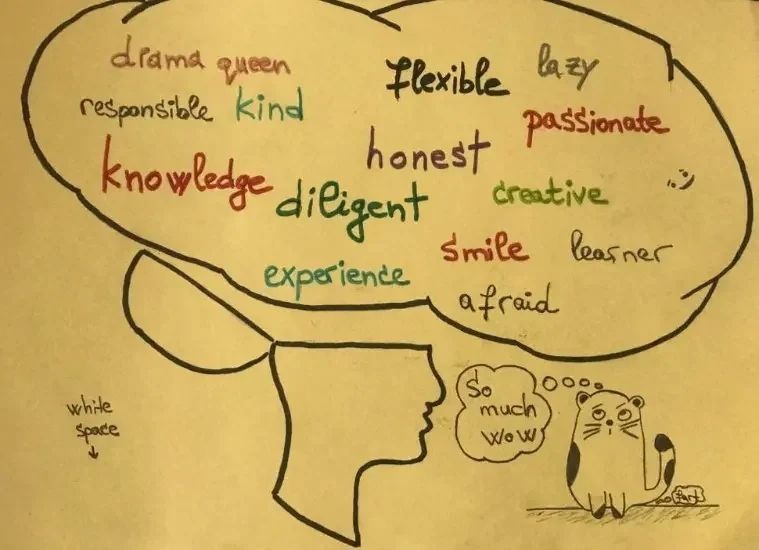 drama queen
flexible
lazy
responsible
kind
passionate
honest
knowledge
diligent
creative
smile
learner
experience
afraid
white
space
So
much
wow
fart